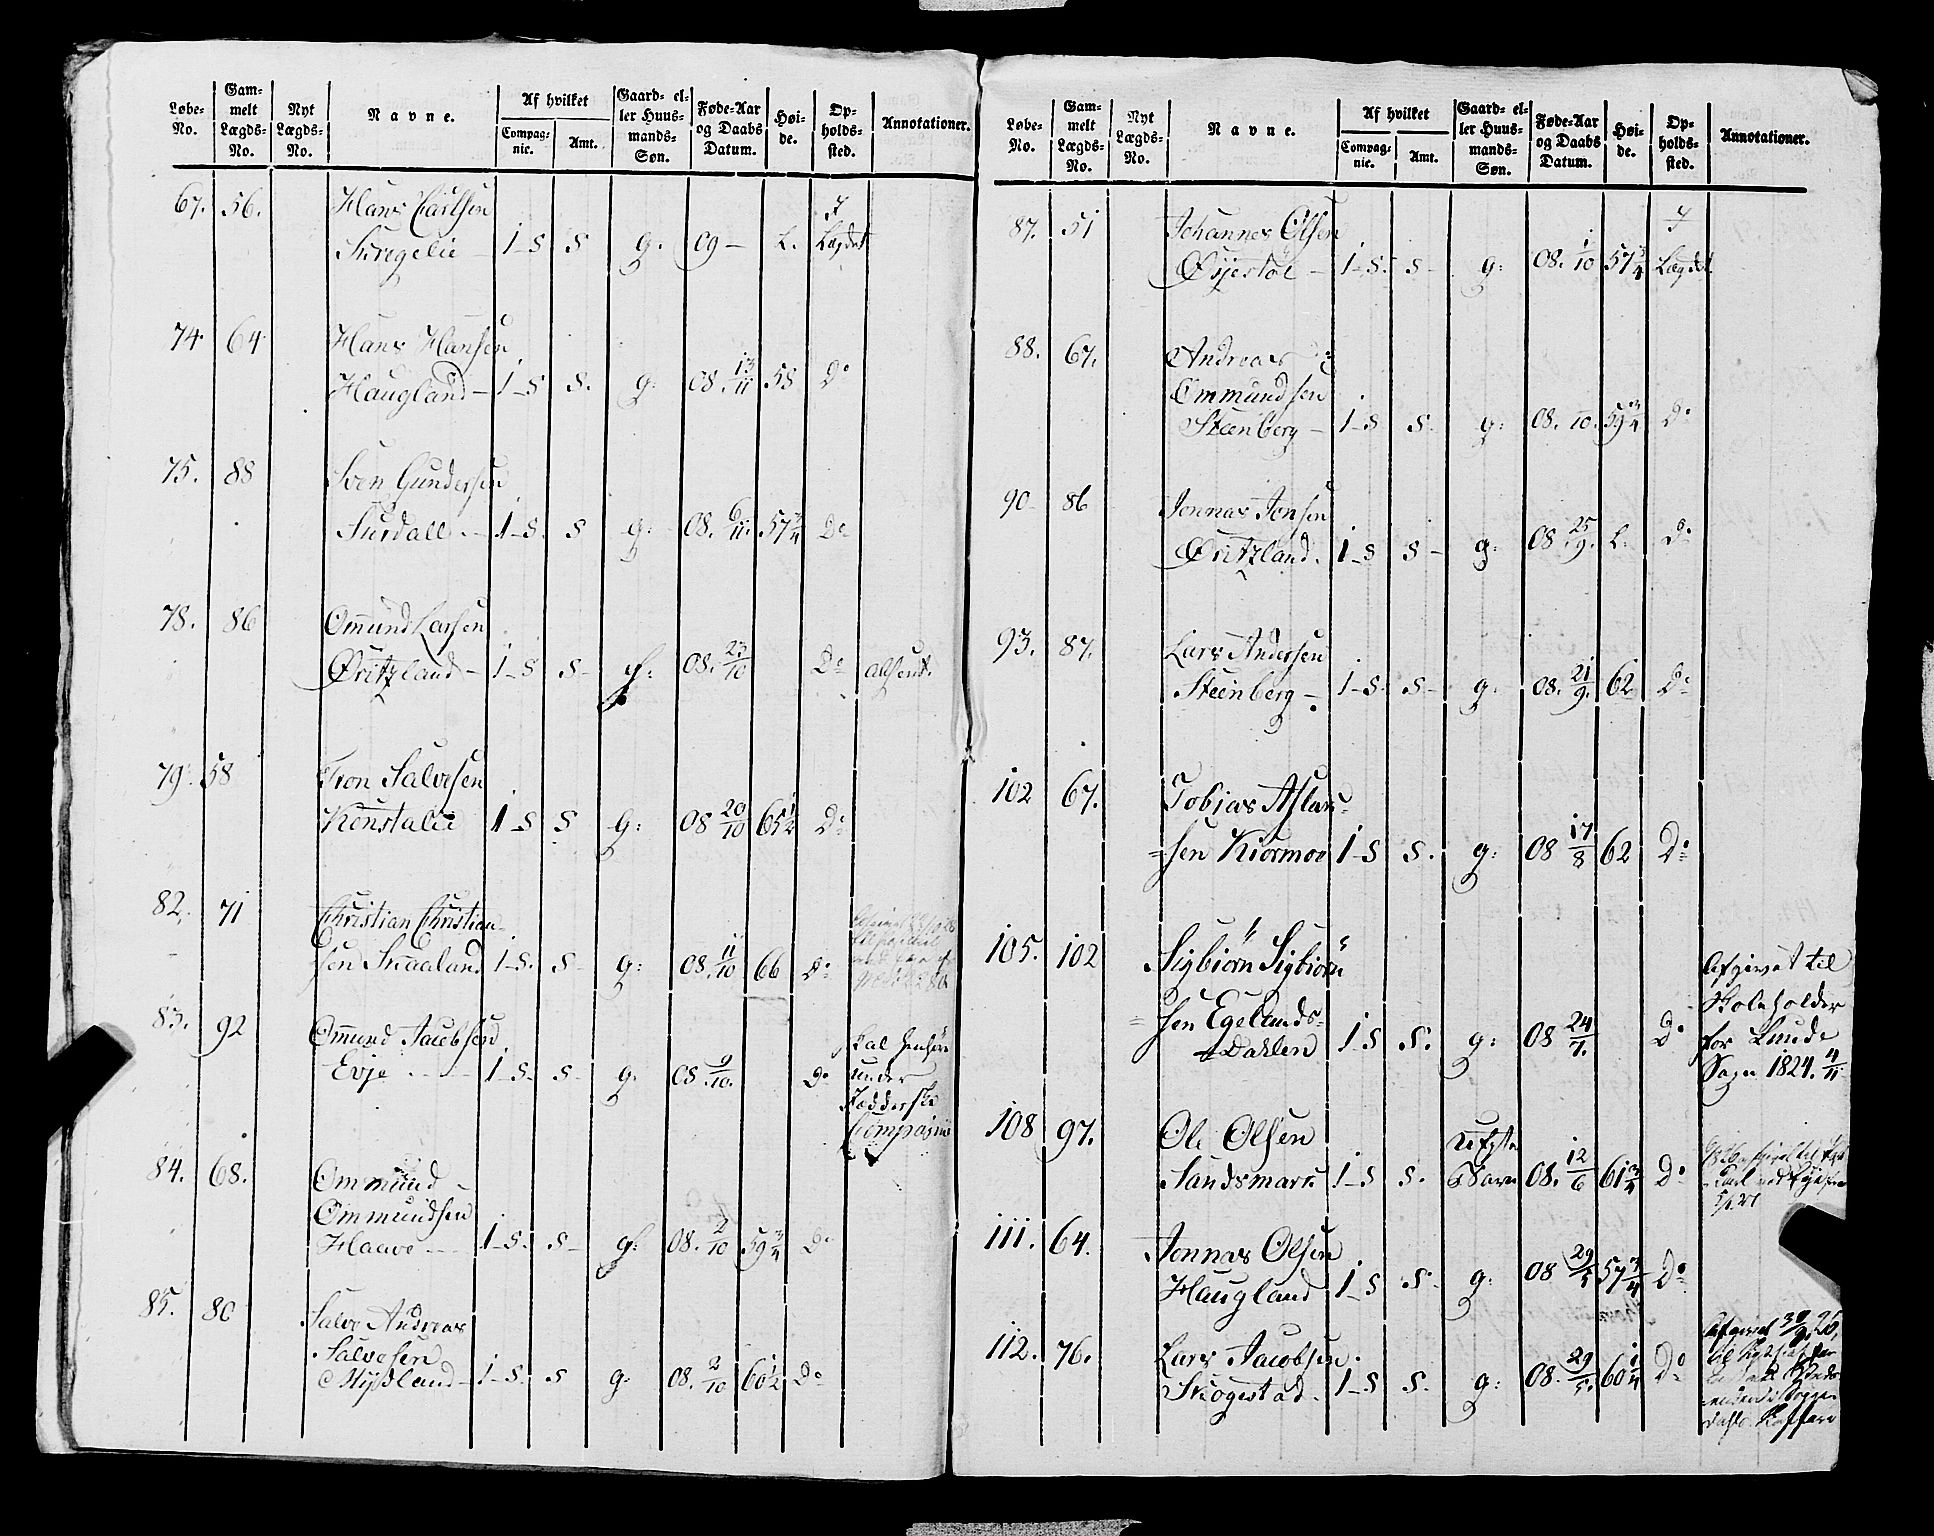 Løbe-No. Gammelt Lægds-No. Nyt Lægds-No. Navne. Af hvilket Compagnie. Amt. Gaard- eller Huusmands-Søn. Føde-Aar og Daabs Datum. Høide. Opholdssted. Annotationer.
67. 56. Hans Carlsen
Skregelie — 1-S S g. 09 — L. I Lægdet
74. 64 Hans Hansen
Haugland — 1-S S. g: 08. 13/11 58 Do
75. 88 Sven Gundersen
Surdall — 1-S. S g: 08. 6/11. 57 3/4 Do
78. 86 Omund Larsen
Øvitzland — 1-S S- 08. 23/10 Do absent.
79. 58 Tron Salvesen
Konstalie 1-S S G: 08 20/10 65 1/2 Do
82. 71 Christian Christian-
sen Skaaland 1-S. S- g: 08. 11/10 66 Do
83. 92 Omund Jacobsen
Evje 1-S. S- g. 08 9/10. Do skal henhøre
under
Jædderske
Compagnie
84. 68. Ommund
Ommundsen
Haave 1-S. S- g: 08. 2/10 59 3/4 Do
85. 80 Salve Andreas
Salvesen
Mydland — 1-S. S g. 08. 2/10 60 1/2 Do
Løbe-No. Gammelt Lægds-No. Nyt Lægds-No. Navne. Af hvilket Compagnie. Amt. Gaard- eller Huusmands-Søn. Føde-Aar og Daabs Datum. Høide. Opholdssted. Annotationer.
87. 51 Johannes Olsen
1-S. S- g: 08. 1/10 57 3/4 I Lægdet
88. 67. Andreas
Ommundsen
Steenberg — 1-S S- g: 08. 10. 59 3/4 Do
90 86 Jonnas Jonsen
Øvitzland. 1-S S- g: 08 25/9. L. Do
93. 87. Lars Andersen
Steenberg — 1-S. S- g: 08. 21/9. 62 Do
102 67. Tobias Aslak-
sen Kiørmoe 1-S S. g: 08 17/8 62 Do
105. 102 Sigbiørn Sigbiørn
sen Egelands-
Dahlen 1-S S. g: 08 24/7. Do Afgivet til
Skoleholder
for Lunde
Sogn 1824. 4/11
108 97. Ole Olsen
Sandsmark 1-S S. Uægte Barn 08. 12/6 61 3/4 Do
111. 64. Jonnas Olsen
Haugland 1-S S- g: 08 29/5 57 3/4 Do
112. 76. Lars Jacobsen
Skogestad. 1-S S. g: 08. 29/5. 60 1/4 Do Afgivet